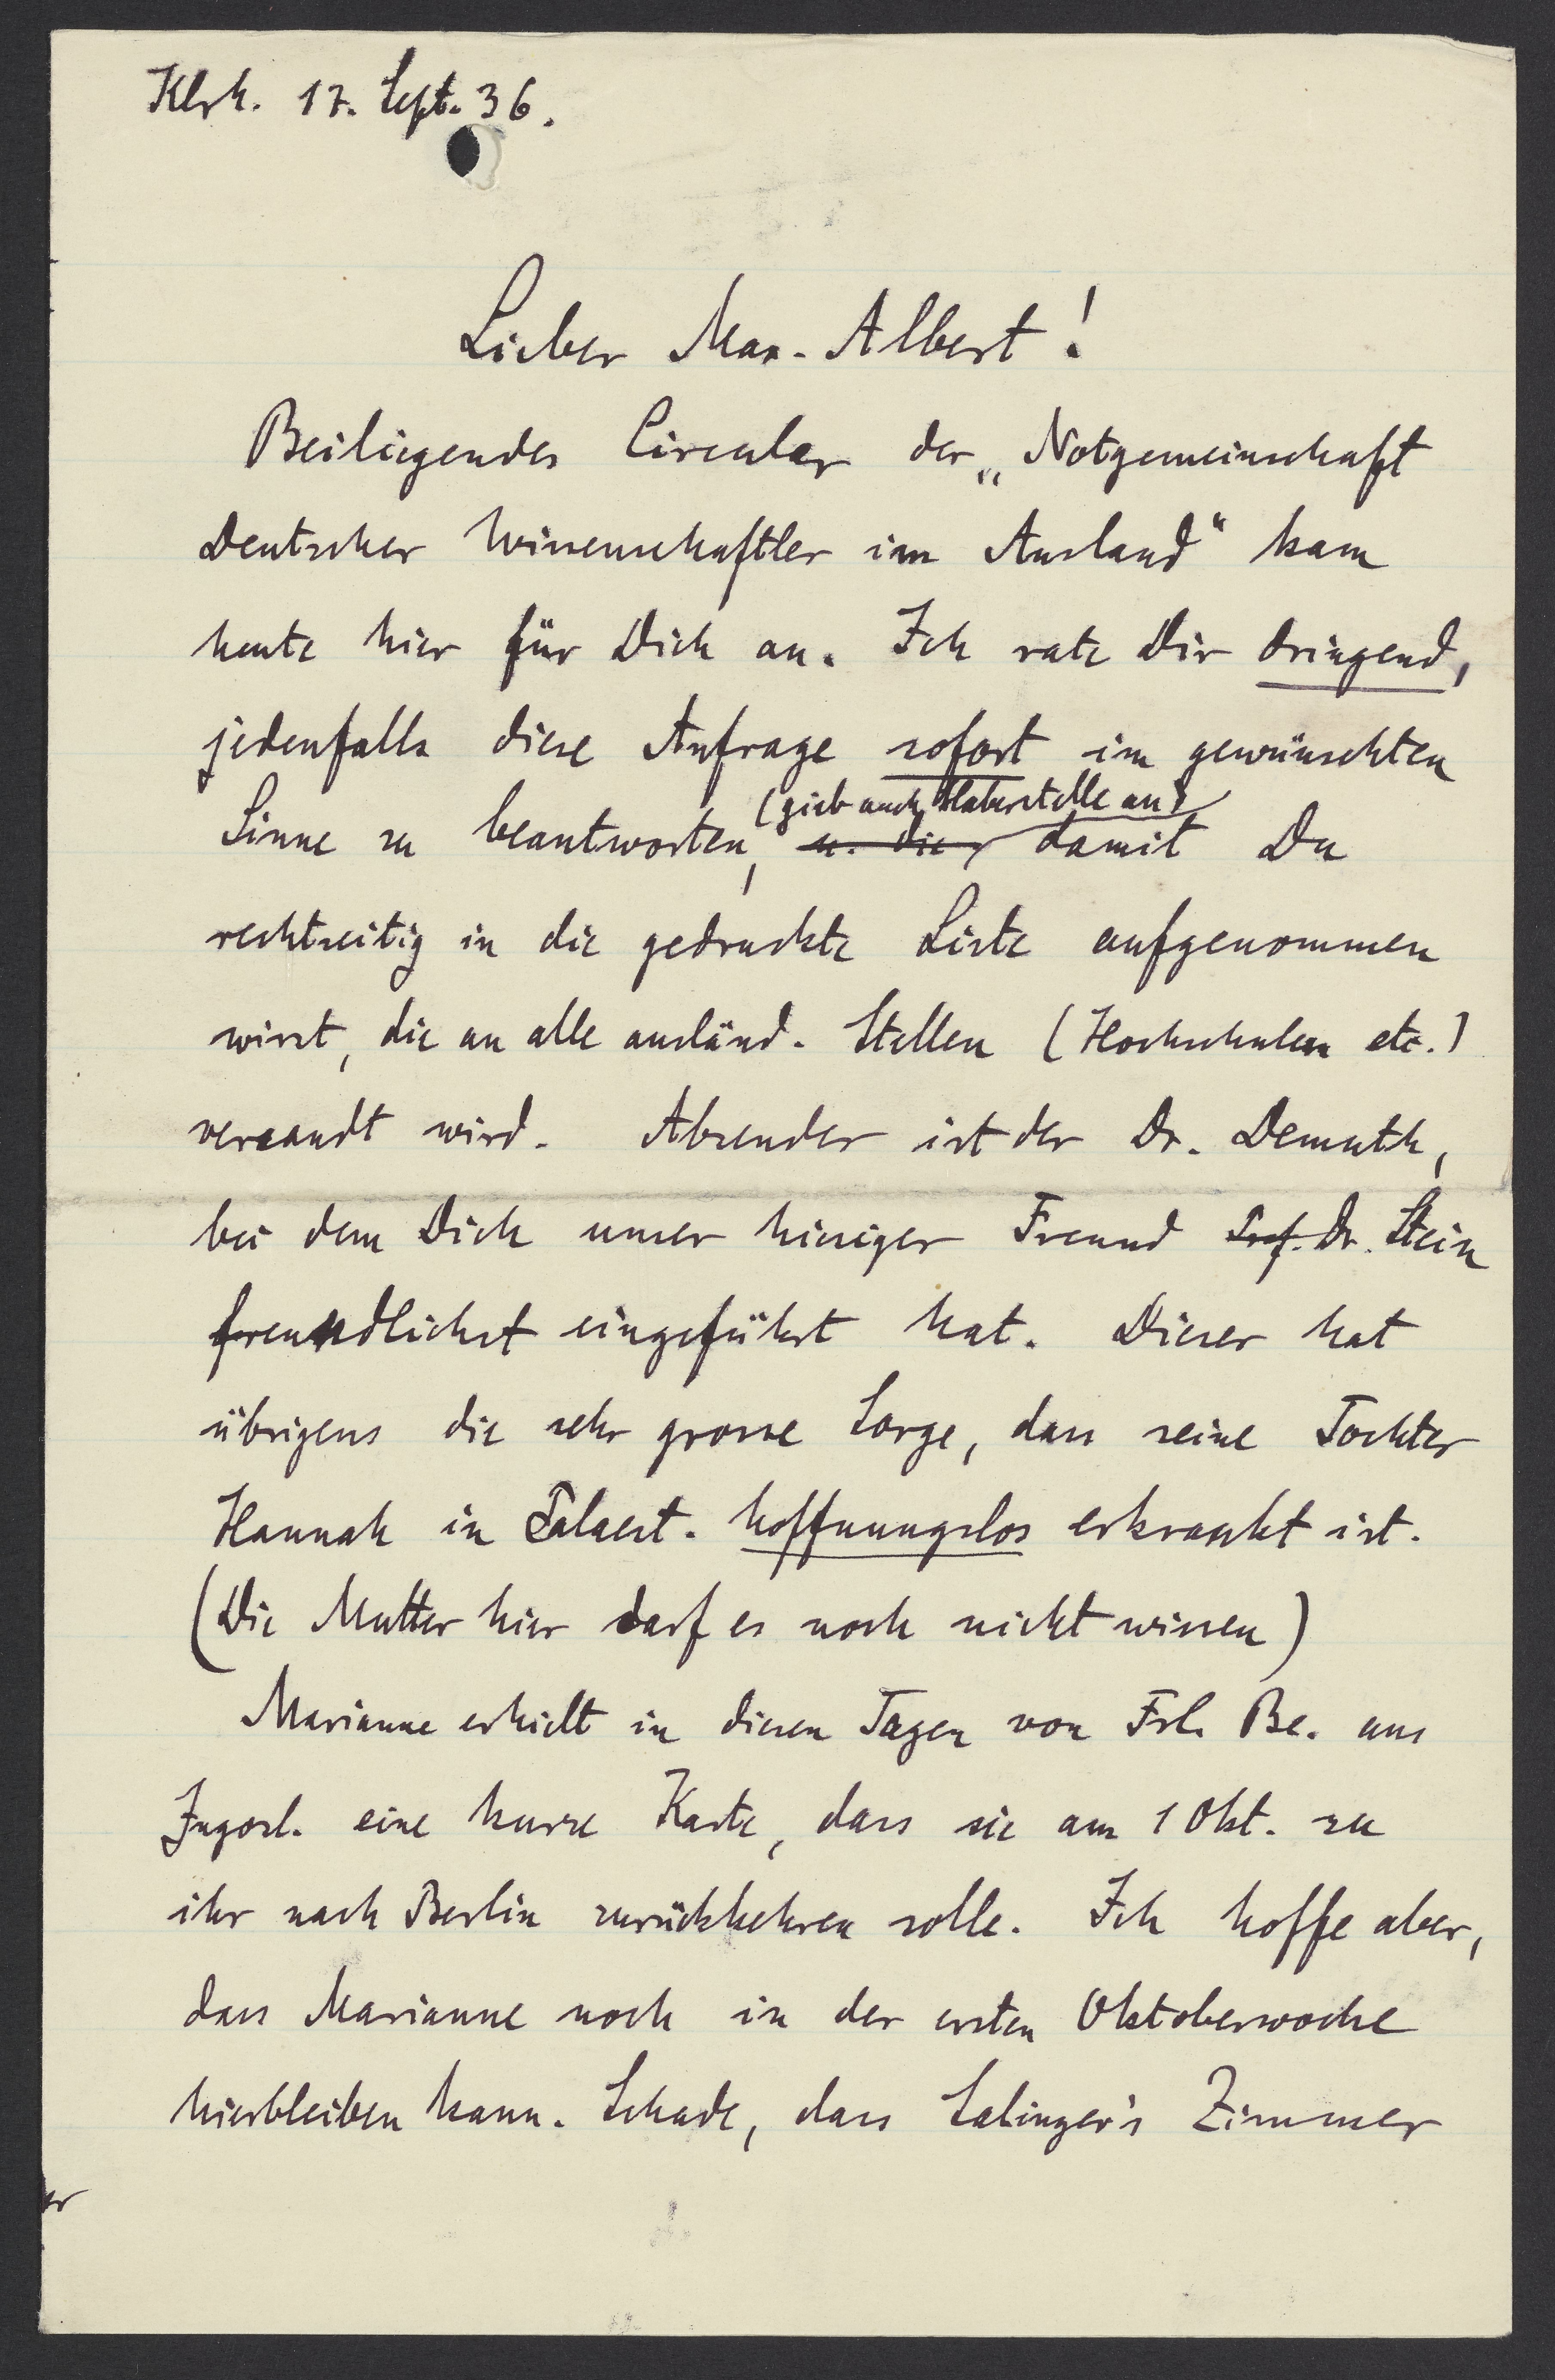 Klrh. 17. Sept. 36.
Lieber Max-Albert!
Beiliegendes Circular der „Notgemeinschaft
Deutscher Wissenschaftler im Ausland“ kam
heute hier für Dich an. Ich rate Dir dringend,
jedenfalls diese Anfrage sofort im gewünschten
(gieb auch Haberstelle an)
Sinne zu beantworten, u. die damit Du
rechtzeitig in die gedruckte Liste aufgenommen
wirst, die an alle ausländ. Stellen (Hochschulen etc.)
versandt wird. Absender ist der Dr. Demuth,
bei dem Dich unser hiesiger Freund Prof. Dr. Stein
freundlichst eingeführt hat. Dieser hat
übrigens die sehr grosse Sorge, dass seine Tochter
Hannah in Palaest. hoffnungslos erkrankt ist.
(Die Mutter hier darf es noch nicht wissen)
Marianne erhielt in diesen Tagen von Frl. Be. aus
Jugosl. eine kurze Karte, dass sie am 1 Okt. zu
ihr nach Berlin zurückkehren solle. Ich hoffe aber,
dass Marianne noch in der ersten Oktoberwoche
hierbleiben kann. Schade, dass Salinger's Zimmer